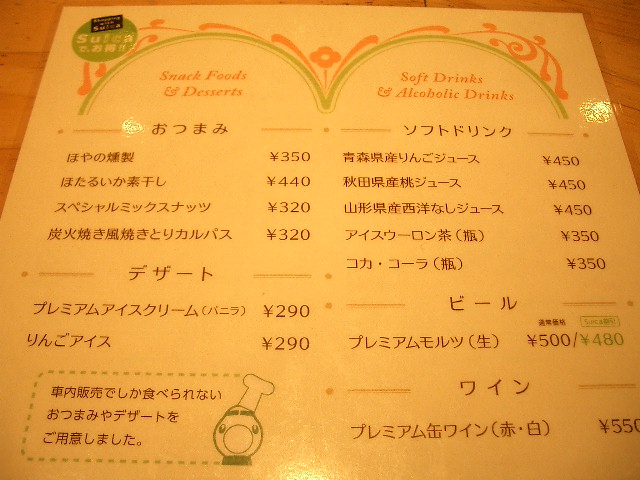 Shopping with Suica
Suica
で、お得!!
Snack Foods
& Desserts
おつまみ
ほやの燻製 ¥350
ほたるいか素干し ¥440
スペシャルミックスナッツ ¥320
炭火焼き風焼きとりカルパス ¥320
デザート
プレミアムアイスクリーム(バニラ) ¥290
りんごアイス ¥290
車内販売でしか食べられない
おつまみやデザートを
ご用意しました。
Soft Drinks
& Alcoholic Drinks
ソフトドリンク
青森県産りんごジュース ¥450
秋田県産桃ジュース ¥450
山形県産西洋なしジュース ¥450
アイスウーロン茶(瓶) ¥350
コカ・コーラ(瓶) ¥350
ビール
通常価格 Suica割引
プレミアムモルツ(生) ¥500/¥480
ワイン
プレミアム缶ワイン(赤・白) ¥550